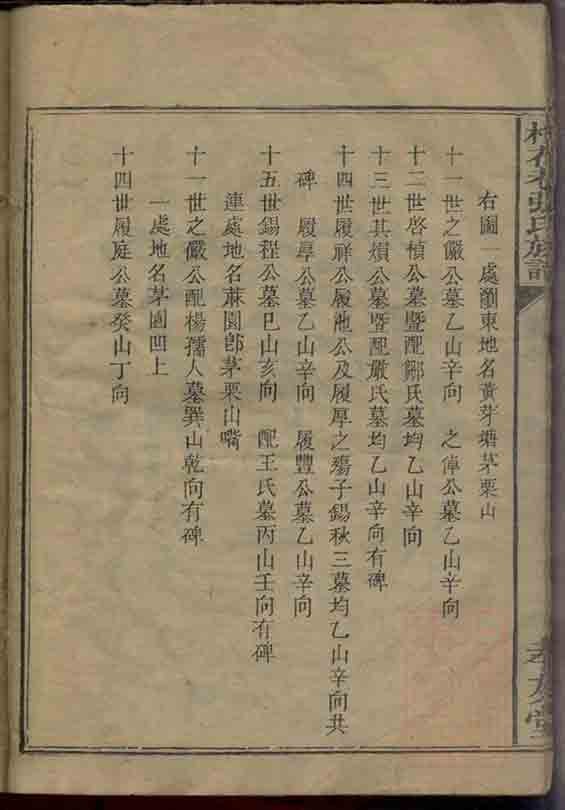 張氏族譜
孝友堂
右圖一處瀏東地名黃芽塘茅栗山
十一世之儼公墓乙山辛向　之倬公墓乙山辛向
十二世啓楨公墓暨配鄒氏墓均乙山辛向
十三世其熉公墓暨配嚴氏墓均乙山辛向有碑
十四世履祥公履池公及履厚之殤子錫秋三墓均乙山辛向共
碑　履厚公墓乙山辛向　履豐公墓乙山辛向
十五世錫程公墓巳山亥向　配王氏墓丙山壬向有碑
連處地名蔴園卽茅栗山嘴
十一世之儼公配楊孺人墓巽山乾向有碑
一處地名茅園凹上
十四世履庭公墓癸山丁向